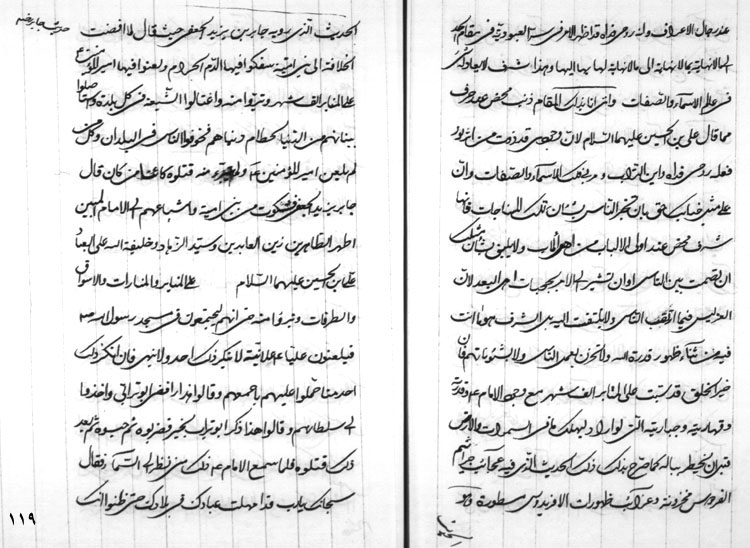 عند رجال الاعراف وانه روحي فداه قد اظهر الامر في سنة العبودية في مقام الحد
الى ما لانهاية بما لانهاية الى ما لانهاية لها بها اليها وهذا شرف لا يعادله
في عالم الاسماء والصفات وانني انا بذلك المقام ذنب محض عند
مما قال علي بن الحسين عليهما السلام لان وجودي
فعله روحي فداه واين التراب و الاسماء والصفات وان
على مثلي حق بان الناس بشان تلك المناجات فانها
شرف محض عند اولي الالباب من اهل ولا يليق بشان مثلك
ان يصمت بين الناس او ان تشير الى الامر بحجبات اهل البعد لان
العز ليس فيما الناس ولا يلتفت اليه بل الشرف هو ما انت
فيه من ظهور قدرة الله ولا تحزن بعمل الناس ولا بشئوناتهم فان
خير الخلق قد سبت على المنابر الف شهر مع وجود الامام ع وقدرته
وقهاريته وجباريته التي لو اراد ليهلك ما في السموات والارض
قبل ان يخطر بباله كما صرح بذلك ذلك الحديث الذي فيه عجائب
الفردوس مخزونة وغرائب ظهورات الافريدوس مسطورة
حديث جابر رضه
الحديث الذي رويه جابر بن يزيد الجعفي حيث قال لما افضت
الخلافة الى بني امية سفكوا فيها الدم الحرام ولعنوا فيها امير المؤمنين ع
على المنابر الف شهر وتبرؤا منه واغتالوا الشيعة في كل بلدة واستاصلوا
بنيانهم من الدنيا لحطام دنياهم فخوفوا الناس في البلدان وكل من
لم يلعن امير المؤمنين ع ولم يتبرء منه قتلوه كائنا من كان قال
جابر بن يزيد الجعفي فشكوت من بني امية واشياعهم الى الامام المبين
اطهر الطاهرين زين العابدين وسيد الزهاد وخليفة الله على العباد
علي بن الحسين عليهما السلام على المنابر والمنارات والاسواق
والطرقات وتبرؤا منه حتى انهم ليجتمعون في مسجد رسول الله ص
فيلعنون عليا ع علانية لا ينكر ذلك احد ولا ينهى فان انكر ذلك
احد منا حملوا عليهم باجمعهم وقالوا هذا رافضي ابو ترابي واخذوه
الى سلطانهم وقالوا هذا ذكر ابو تراب بخير فضربوه ثم حبسوه ثم بعد
ذلك قتلوه فلما سمع الامام ع ذلك مني نظر الى السماء فقال
سبحانك يا رب قد امهلت عبادك في بلادك حتى ظنوا انك
١١٩